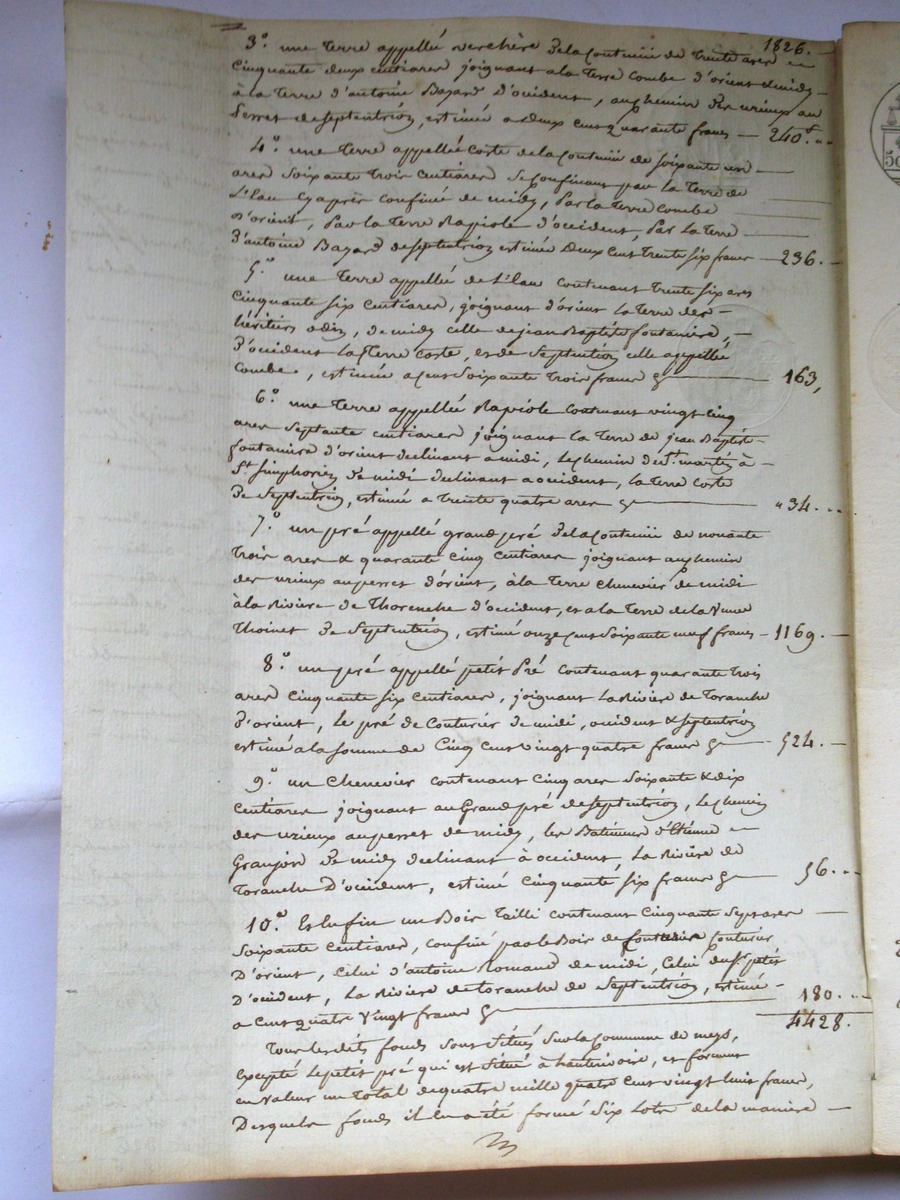 1826. —
3.° une Terre appellée verchère De la Contenue de trente ares —
Cinquante deux centiares joignant a la Terre combe d'orient & midy —
à la Terre d'antoine Bazard D'occident, au chemin des urieux au
Serret de septentrion, estimée a deux cent quarante francs — 240.f „ „
4.° une Terre appellée Coste de la Contenue de soixante un —
ares soixante trois centiares Se Confinant par la Terre de
L'Eau cy après confinée de midy, Par la Terre combe
D'orient, Par la Terre Rapiole d'occident, Par la Terre —
D'antoine Bazard de septentrion estimée Deux Cent trente six francs — 236. —
5.° une Terre appellée de L'Eau contenant trente six ares
Cinquante six centiares, joignant d'orient la Terre des —
héritiers odin, de midy celle de jean Baptiste fontanière, —
D'occident la Terre Coste, et de Septentrion celle appellée
Combe, estimée a cent Soixante trois francs — 163,
6.° une Terre appellée Rapiole contenant vingt cinq
ares Septante centiares joignant la Terre de jean Baptiste
fontanière d'orient declinant a midi, le chemin de St. martin à —
St. Simphorien De midi declinant a occident, la Terre coste
De Septentrion, estimée a trente quatre ares — „ 34. . .
7.° un pré appellé grand pré De la Contenue de nonante
trois ares & quarante cinq centiares joignant au chemin
des urieux au perret d'orient, à la Terre chenevier de midi
à la Rivière de Thorenche d'occident, et a la Terre de la veuve
Thoinet De Septentrion, estimé onze cent Soixante neuf francs — 1169. —
8.° un pré appellé petit Pré contenant quarante trois
ares cinquante six centiares, joignant la Rivière de Toranche
D'orient, le pré de Couturier De midi, occident & septentrion
estimé a la somme de Cinq cent vingt quatre francs — 524. —
9.° un chenevier contenant cinq ares soixante & dix
centiares joignant au Grand pré de septentrion, le chemin
des urieux au perret de midy, les Batiments d'Etienne —
Granjon De midy declinant à occident, la Rivière de
Toranche D'occident, estimé cinquante six francs — 56. . .
10.° Et Enfin un Bois Taillé contenant Cinquante Sept ares —
Soixante centiares, confiné par le Bois de Couturier
D'orient, Celui d'antoine Romand de midi, Celui du Sr. petit
D'occident, la Rivière de toranche de Septentrion, estimé —
a Cent quatre vingt francs — 180. . .
4428.
Tous les dits fonds sont Situés Sur la Commune de meys,
excepté le petit pré qui est Situé à hauterivoire, et forment
en valeur un Total de quatre mille quatre cent vingt huit francs,
Desquels fonds il en a été formé Six Lots de la maniere —